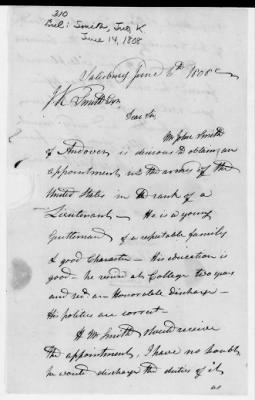 210
Encl: Smith, Jno, K
June 14, 1808
Salisbury June 6th 1808
J K Smith Esqr
Dear Sir
Mr John Smith
of Andover is desirous to obtain an
appointment in the army of the
United States in the rank of a
Lieutenant – He is a young
Gentleman of a reputable family
& good Character – His education is
good – he resided at College two years
and red an Honorable discharge –
His politics are correct –
If Mr Smith should receive
the appointment, I have no doubt
he would discharge the duties of it
as